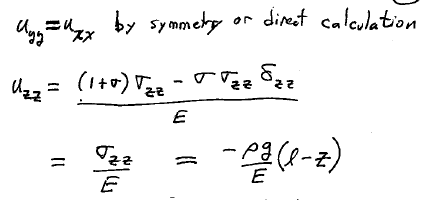 u_yy = u_xx by symmetry or direct calculation
u_zz = ((1+σ) σ_zz - σ σ_zz δ_zz) / E
= σ_zz / E = (-ρg / E) (l-z)